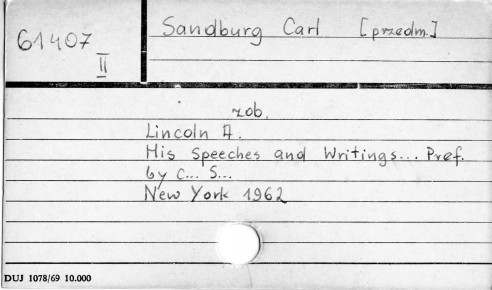 61407
II
Sandburg Carl [przedm.]
zob.
Lincoln A.
His Speeches and Writings... Pref.
by C... S...
New York 1962
DUJ 1078/69 10.000